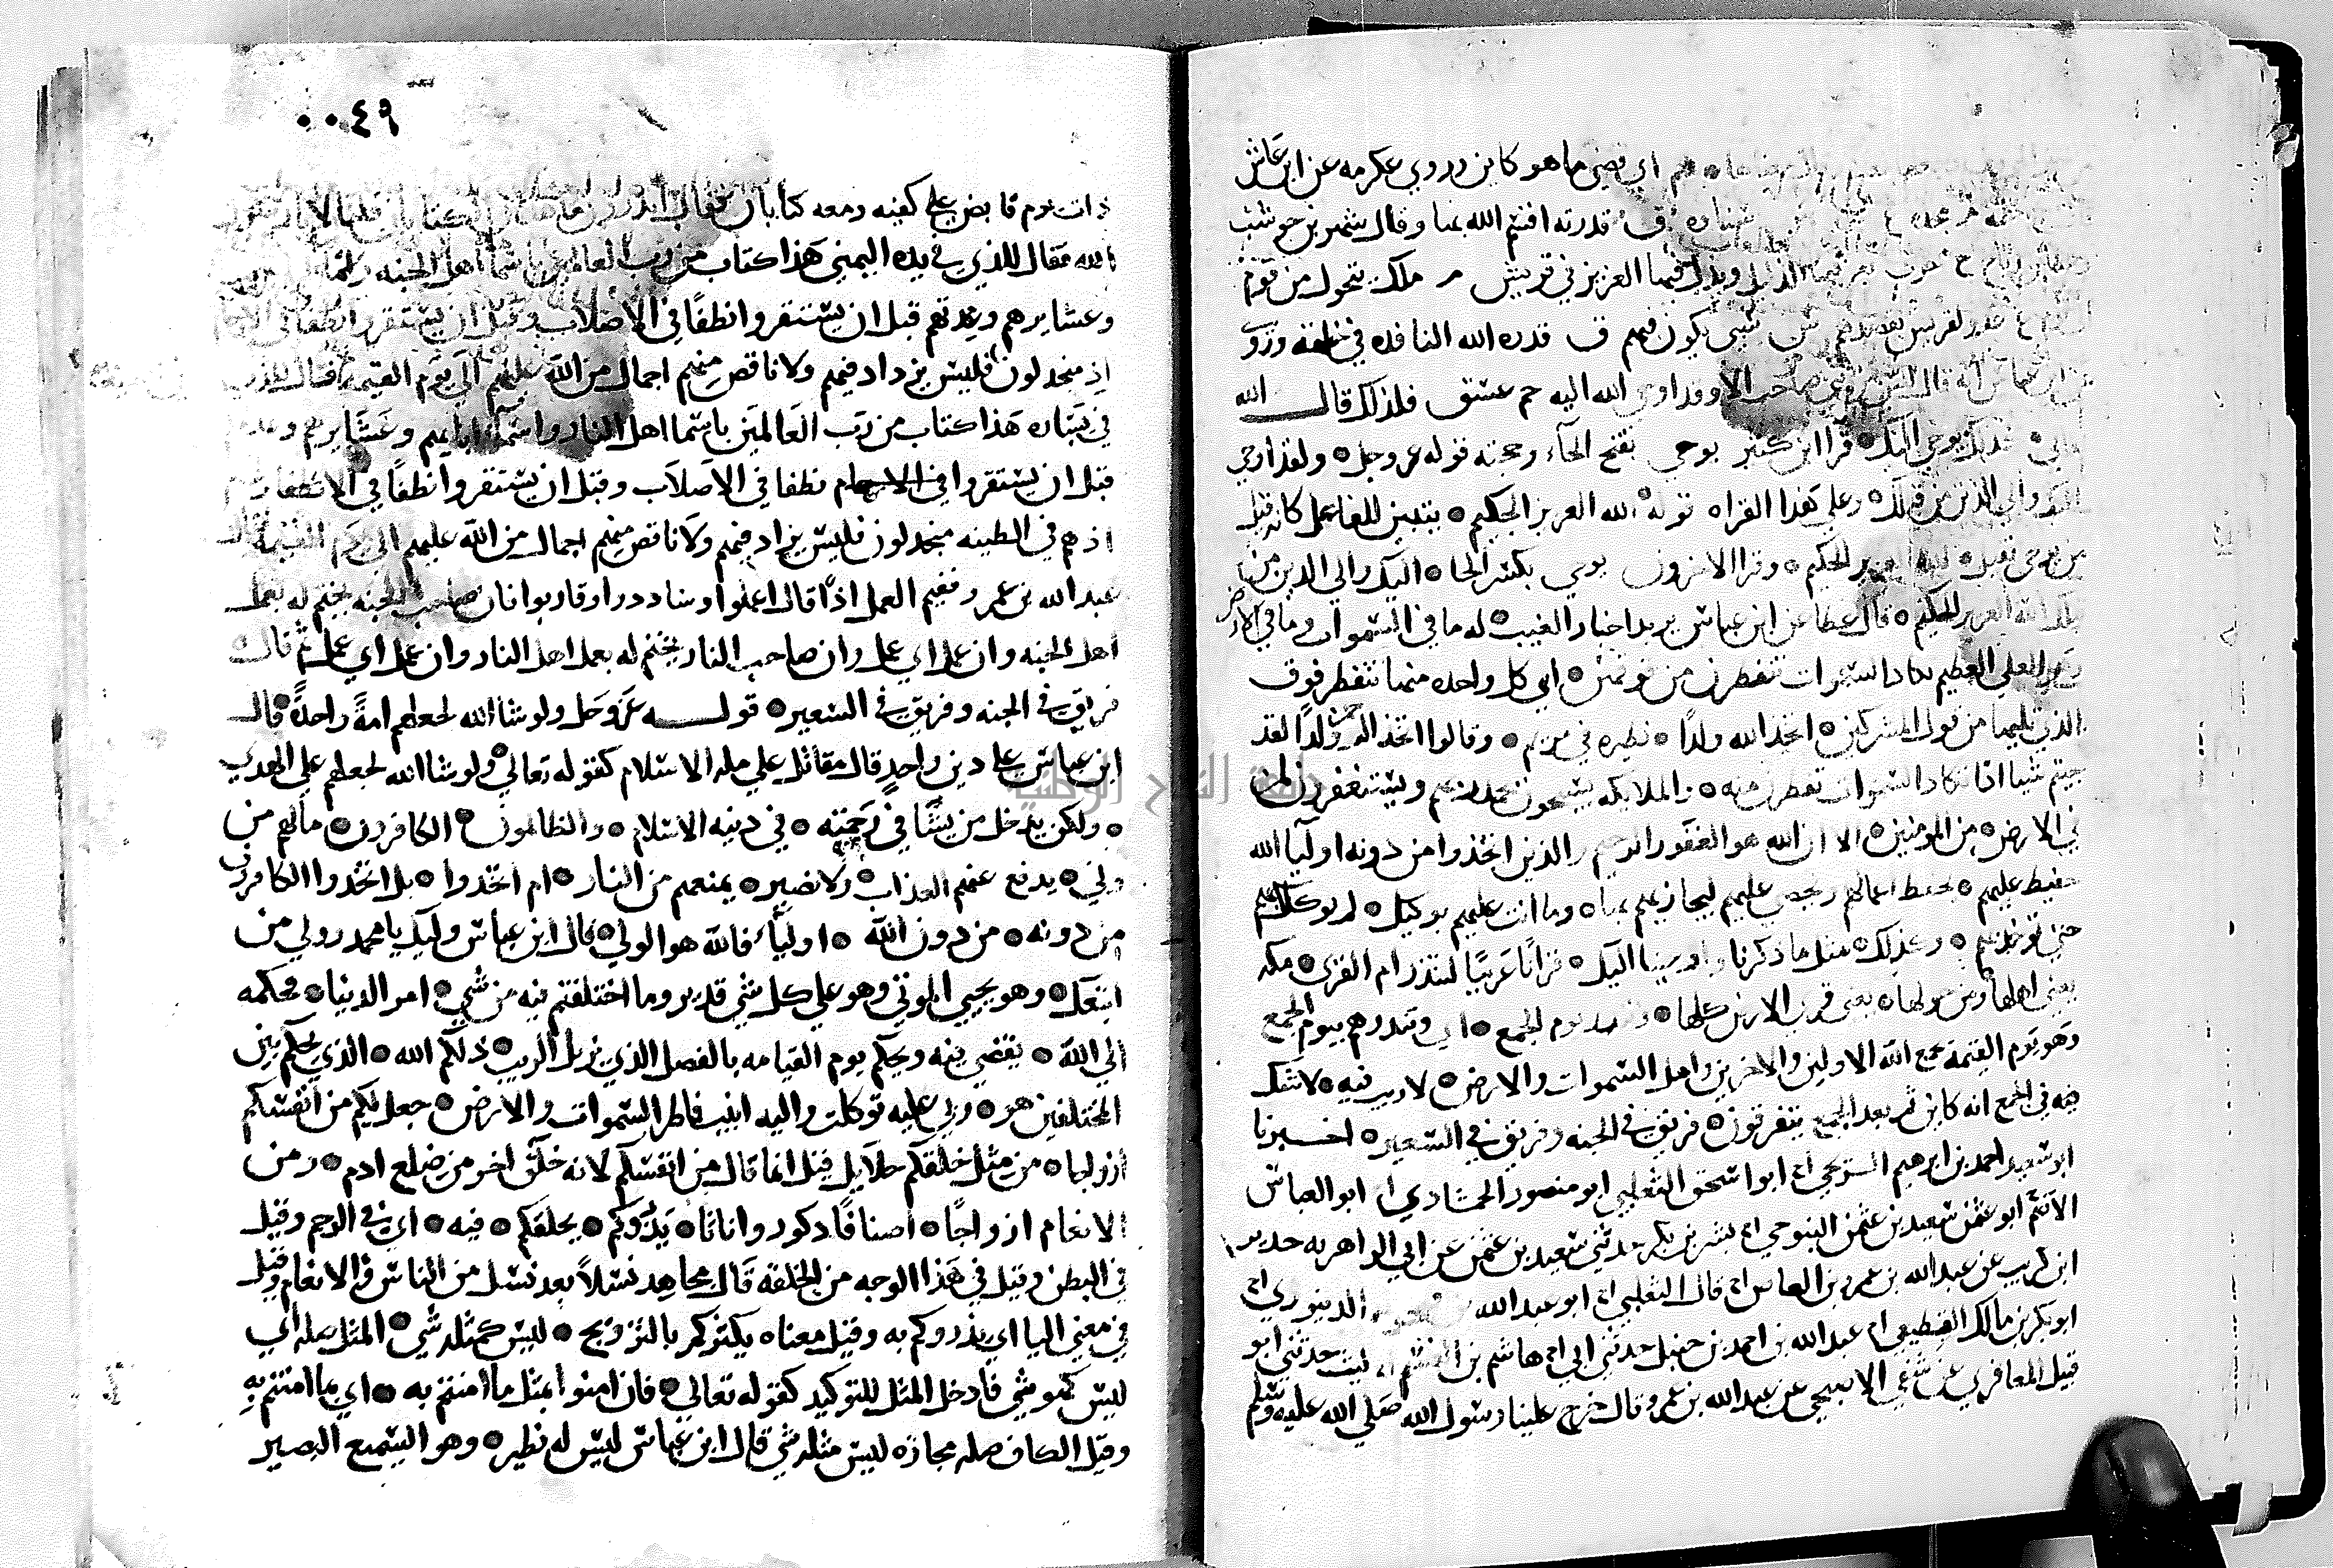 اي قضي ما هو كاين وروي عكرمه عن ابن عباس
قدرته اقسم الله بها وقال شهر بن حوشب
الذليل ويذل فيها العزيز في قريش م ملك يتحول من قوم
يكون فيهم ق قدره الله النافذه في خلقه وروي
الا وقد اوحي الله اليه حم عسق فلذلك قال الله
يوحي اليك قرا ابن كثير يوحي بفتح الحاء وحجته قوله عز وجل ولقد اوحي
اليك والي الذين من قبلك وعلي هذا القراه قوله الله العزيز الحكيم يتبين للفاعل كانه قيل
من يوحي فقيل الله العزيز الحكيم وقرا الاخرون يوحي بكسر الحا اليك والي الذين من
الله العزيز الحكيم قال عطا عن ابن عباس يريد اخبار الغيب له ما في السموات وما في الارض
وهو العلي العظيم تكاد السموات يتفطرن من فوقهن اي كل واحده منها تتفطر فوق
الذي تليها من قول المشركين اتخذ الله ولدا نظيره في مريم وقالوا اتخذ الرحمن ولدا لقد
جيتم شيا ادا تكاد السموات يتفطرن منه والملايكه يسبحون بحمد ربهم ويستغفرون لمن
في الارض من المومنين الا ان الله هو الغفور الرحيم والذين اتخذوا من دونه اوليا الله
حفيظ عليهم يحفظ اعمالهم ويحصي عليهم ليجازيهم بها وما انت عليهم بوكيل لم يوكلك بهم
حتي توخذ بهم وكذلك مثل ما ذكرنا اوحينا اليك قرانا عربيا لتنذر ام القري مكه
يعني اهلها ومن حولها يعني قري الارض كلها وتنذر يوم الجمع اي وتنذرهم بيوم الجمع
وهو يوم القيمة يجمع الله الاولين والاخرين واهل السموات والارض لا ريب فيه لا شك
فيه في الجمع انه كاين ثم بعد الجمع يتفرقون فريق في الجنه وفريق في السعير اخبرنا
ابو سعيد احمد بن ابرهيم الشريحي انا ابو اسحق الثعلبي ابو منصور الحمشادي انا ابو العباس
الاصم ابو عثمن سعيد بن عثمن التنوحي انا بشر بن بكر حدثني سعيد بن عثمن عن ابي الزاهريه حدير
ابن كريب عن عبد الله بن عمرو بن العاص انا قال الثعلبي انا ابو عبد الله الدينوري انا
ابو بكر بن مالك القطيعي انا عبد الله بن احمد بن حنبل حدثني ابي انا هاشم بن القسم انا ليث حدثني ابو
قبيل المعافري عن شفي الاصبحي عن عبد الله بن عمرو قال خرج علينا رسول الله صلي الله عليه وسلم
٠٠٤٩
ذات يوم قابض علي كفيه ومعه كتابان فقال اتدرون ما هذان الكتابان قلنا لا يا رسول
الله فقال للذي في يده اليمني هذا كتاب من رب العالمين باسما اهل الجنه واسما
وعشايرهم وعدتهم قبل ان يستقروا نطفا في الاصلاب وقبل ان يستقروا نطفا في الارحام
اذ منجدلون فليس يزداد فيهم ولا ناقص منهم اجمال من الله عليهم الي يوم القيمه فقال للذي
في يساره هذا كتاب من رب العالمين باسما اهل النار واسما ابايهم وعشايرهم
قبل ان يستقروا في الارحام نطفا في الاصلاب وقبل ان يستقروا نطفا في الارحام
اذ هم في الطينه منجدلون فليس يزاد فيهم ولا ناقص منهم اجمال من الله عليهم الي يوم القيمه قال
عبد الله بن عمر وففيم العمل اذا قال اعملوا وسددوا وقاربوا فان صاحب الجنه يختم له بعمل
اهل الجنه وان عمل اي عمل وان صاحب النار يختم له بعمل اهل النار وان عمل اي عمل ثم قال
فريق في الجنه وفريق في السعير قوله عز وجل ولو شا الله لجعلهم امة واحدة قال
ابن عباس علي دين واحد قال مقاتل علي مله الاسلام كقوله تعالي ولو شا الله لجعلهم علي الهدي
ولكن يدخل من يشا في رحمته في دينه الاسلام والظالمون الكافرون ما لهم من
ولي يدفع عنهم العذاب ولا نصير يمنعهم من النار ام اتخذوا بل اتخذوا الكافرون
من دونه من دون الله اولياء فالله هو الولي قال ابن عباس وليك يا محمد وولي من
اتبعك وهو يحيي الموتي وهو علي كل شي قدير وما اختلفتم فيه من شي امر الدنيا فحكمه
الي الله يقضي فيه ويحكم يوم القيامه بالفصل الذي يزيل الريب ذلكم الله الذي يحكم بين
المختلفين هو ربي عليه توكلت واليه انيب فاطر السموات والارض جعل لكم من انفسكم
ازواجا من مثل خلقكم حلايل قيل انما قال من انفسكم لانه خلق اخو من ضلع ادم ومن
الانعام ازواجا اصنافا ذكور واناثا يذروكم يخلقكم فيه اي في الرحم وقيل
في البطن وقيل في هذا الوجه من الخلقه قال مجاهد نسلا بعد نسل من الناس والانعام وقيل
في معني اليا اي يذروكم به وقيل معناه يكثركم بالتزويج ليس كمثله شي المثل صله اي
ليس كهو شي فادخل المثل للتوكيد كقوله تعالي فان امنوا بمثل ما امنتم به اي بما امنتم به
وقيل الكاف صله مجازه ليس مثله شي قال ابن عباس ليس له نظير وهو السميع البصير